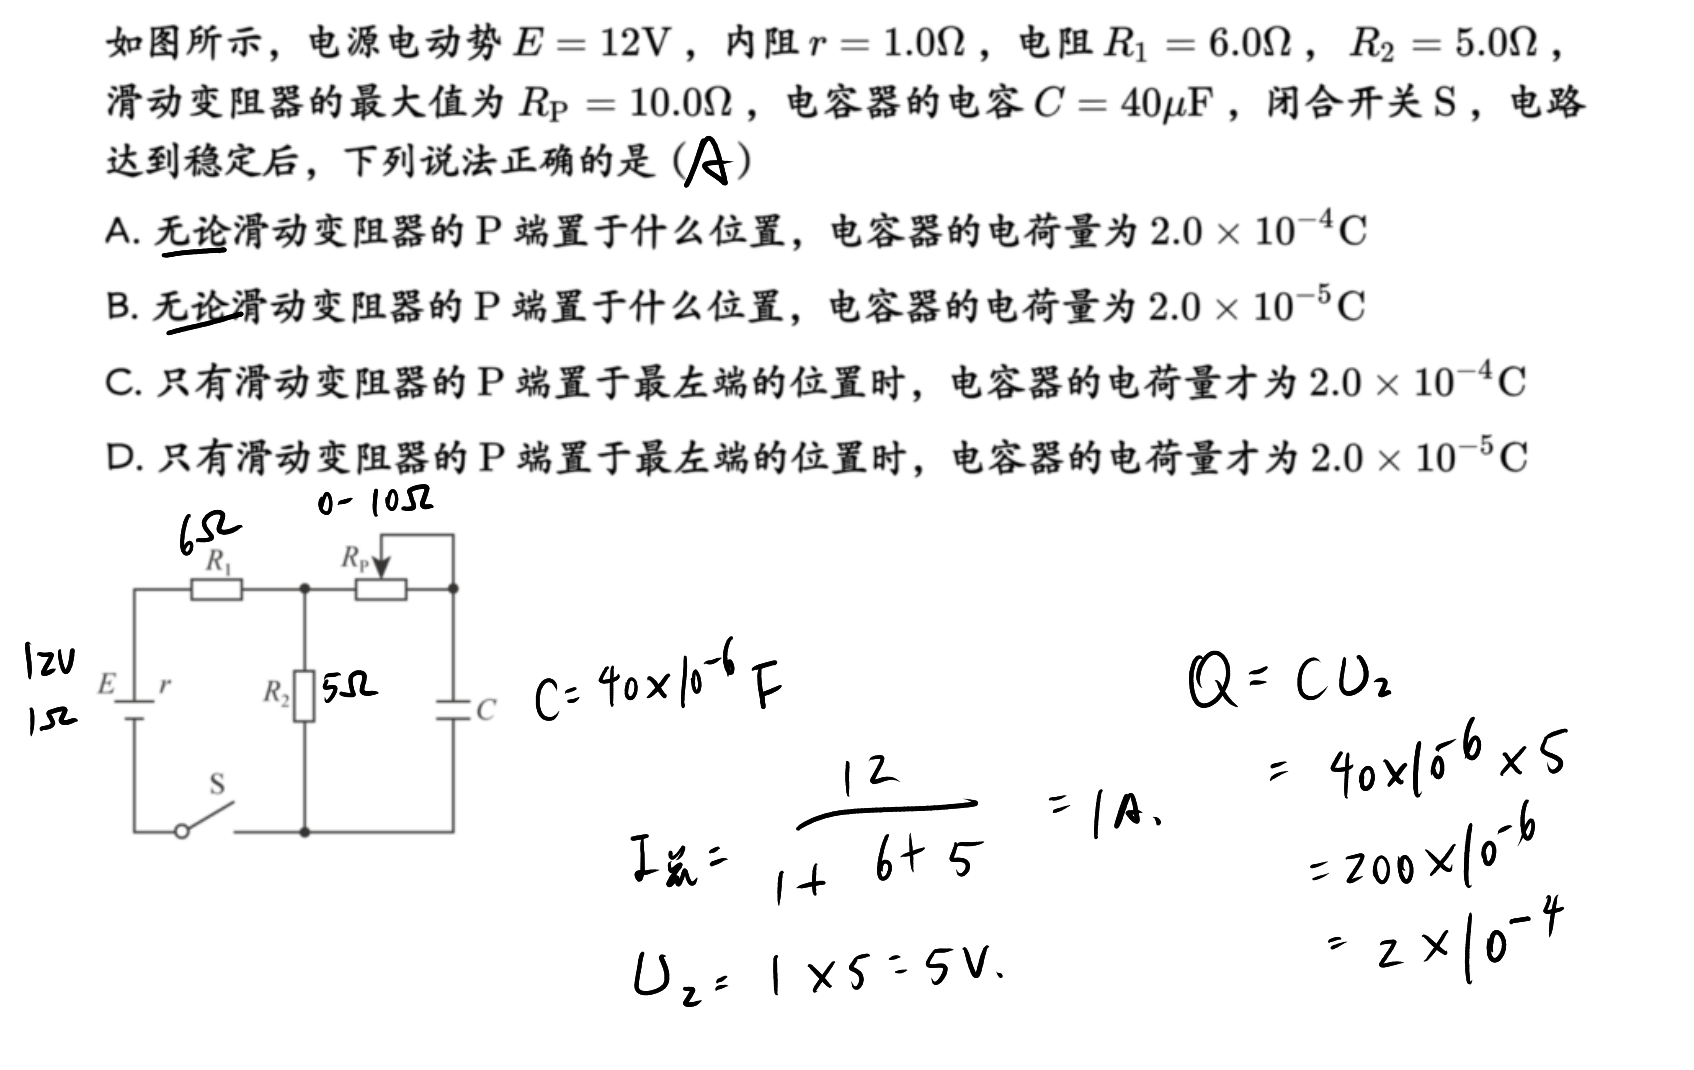 如图所示，电源电动势 E = 12V，内阻 r = 1.0Ω，电阻 R₁ = 6.0Ω， R₂ = 5.0Ω，
滑动变阻器的最大值为 R_P = 10.0Ω，电容器的电容 C = 40μF，闭合开关 S，电路
达到稳定后，下列说法正确的是 (A)
A. 无论滑动变阻器的 P 端置于什么位置，电容器的电荷量为 2.0 × 10⁻⁴C
B. 无论滑动变阻器的 P 端置于什么位置，电容器的电荷量为 2.0 × 10⁻⁵C
C. 只有滑动变阻器的 P 端置于最左端的位置时，电容器的电荷量才为 2.0 × 10⁻⁴C
D. 只有滑动变阻器的 P 端置于最左端的位置时，电容器的电荷量才为 2.0 × 10⁻⁵C
6Ω
0-10Ω
R₁
R_P
12V
1Ω
E r
R₂ 5Ω
C
S
C = 40×10⁻⁶ F
I总 = 12/(1+6+5) = 1A.
U₂ = 1×5 = 5V.
Q = CU₂
= 40×10⁻⁶×5
= 200×10⁻⁶
= 2×10⁻⁴